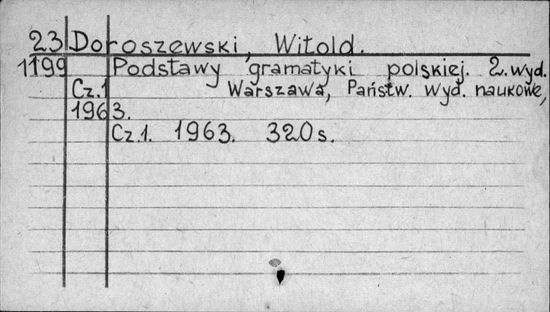 23 Doroszewski, Witold.
1199 Podstawy gramatyki polskiej. 2. wyd.
Cz.1 Warszawa, Państw. wyd. naukowe,
1963.
Cz.1. 1963. 320 s.